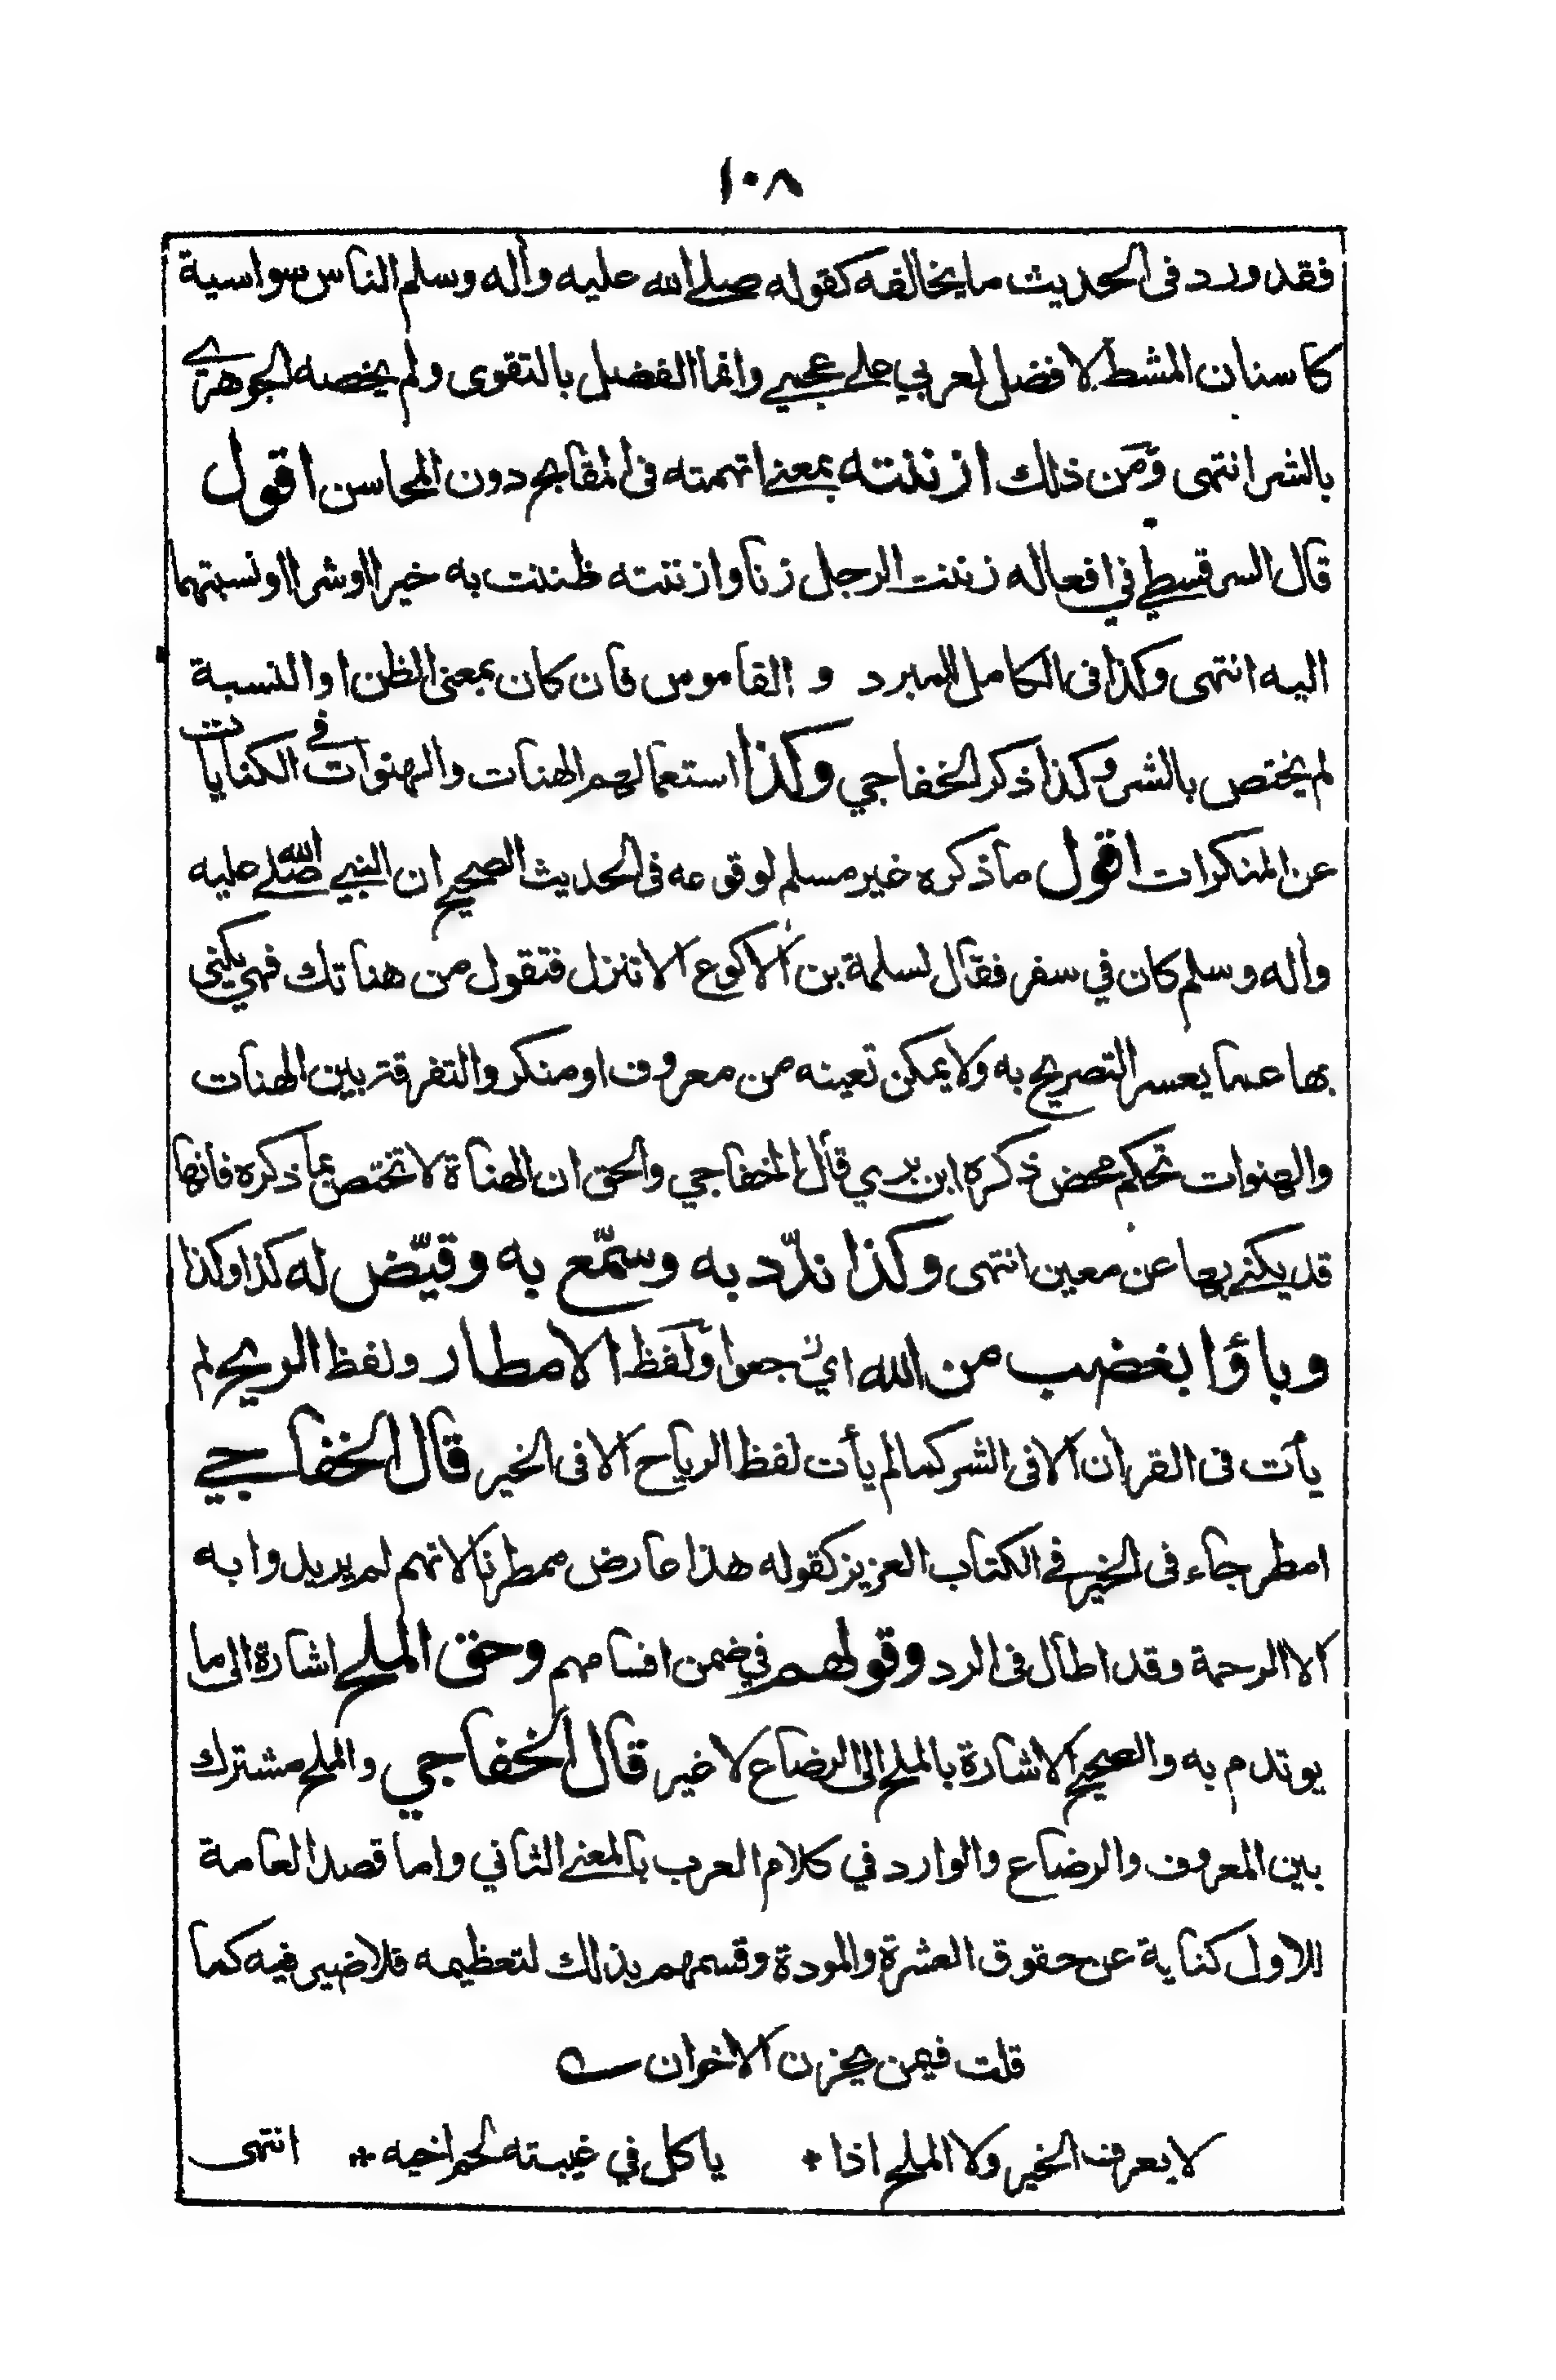 ١٠٨
فقد ورد فى الحديث ما يخالفه كقوله صلے الله عليه وآله وسلم الناس سواسية
كاسنان المشط لا فضل لعربي علے عجمے وانما الفضل بالتقوى ولم يخصه الجوهرے
بالشر انتهى ومن ذلك ازننته بمعنے اتهمته فى المقابح دون المحاسن اقول
قال السرقسطي في افعاله زننت الرجل زنا وازننته ظننت به خيرا او شرا او نسبتهما
اليه انتهى وكذا فى الكامل للمبرد و القاموس فان كان بمعنى الظن او النسبة
لم يختص بالشر وكذا ذكر الخفاجي وكذا استعمالهم الهنات والهنوات في الكنايات
عن المنكرات اقول ما ذكره غير مسلم لوقوعه فى الحديث الصحيح ان النبي صلے الله عليه
واله وسلم كان في سفر فقال لسلمة بن الاكوع الا تنزل فتقول من هناتك فهي يكنى
بها عما يعسر التصريح به ولا يمكن تعينه من معروف او منكر والتفرقة بين الهنات
والهنوات تحكم محض ذكره ابن بري قال الخفاجي والحق ان الهناة لا تختص بما ذكره فانها
قد يكنے بها عن معين انتهى وكذا ندّد به وسمّع به وقيّض له كذا وكذا
وباؤا بغضب من الله اي رجعوا ولفظ الامطار ولفظ الريح لم
يأت فى القرأن الا فى الشر كما لم يأت لفظ الرياح الا فى الخير قال الخفاجے
امطر جاء فى الخير في الكتاب العزيز كقوله هذا عارض ممطرنا لانهم لم يريدوا به
الا الرحمة وقد اطال فى الرد وقولهم في ضمن اقسامهم وحق الملح اشارة الى ما
يوتدم به والصحيح الاشارة بالملح الى الرضاع لا غير قال الخفاجي والملح مشترك
بين المعروف والرضاع والوارد في كلام العرب بالمعنے الثاني واما قصد العامة
للاول كناية عن حقوق العشرة والمودة وقسمهم بذلك لتعظيمه فلا ضير فيه كما
قلت فيمن يحزن الاخوان ؎
لا يعرف الخير ولا الملح اذا * ياكل في غيبته لحم اخيه ** انتهى